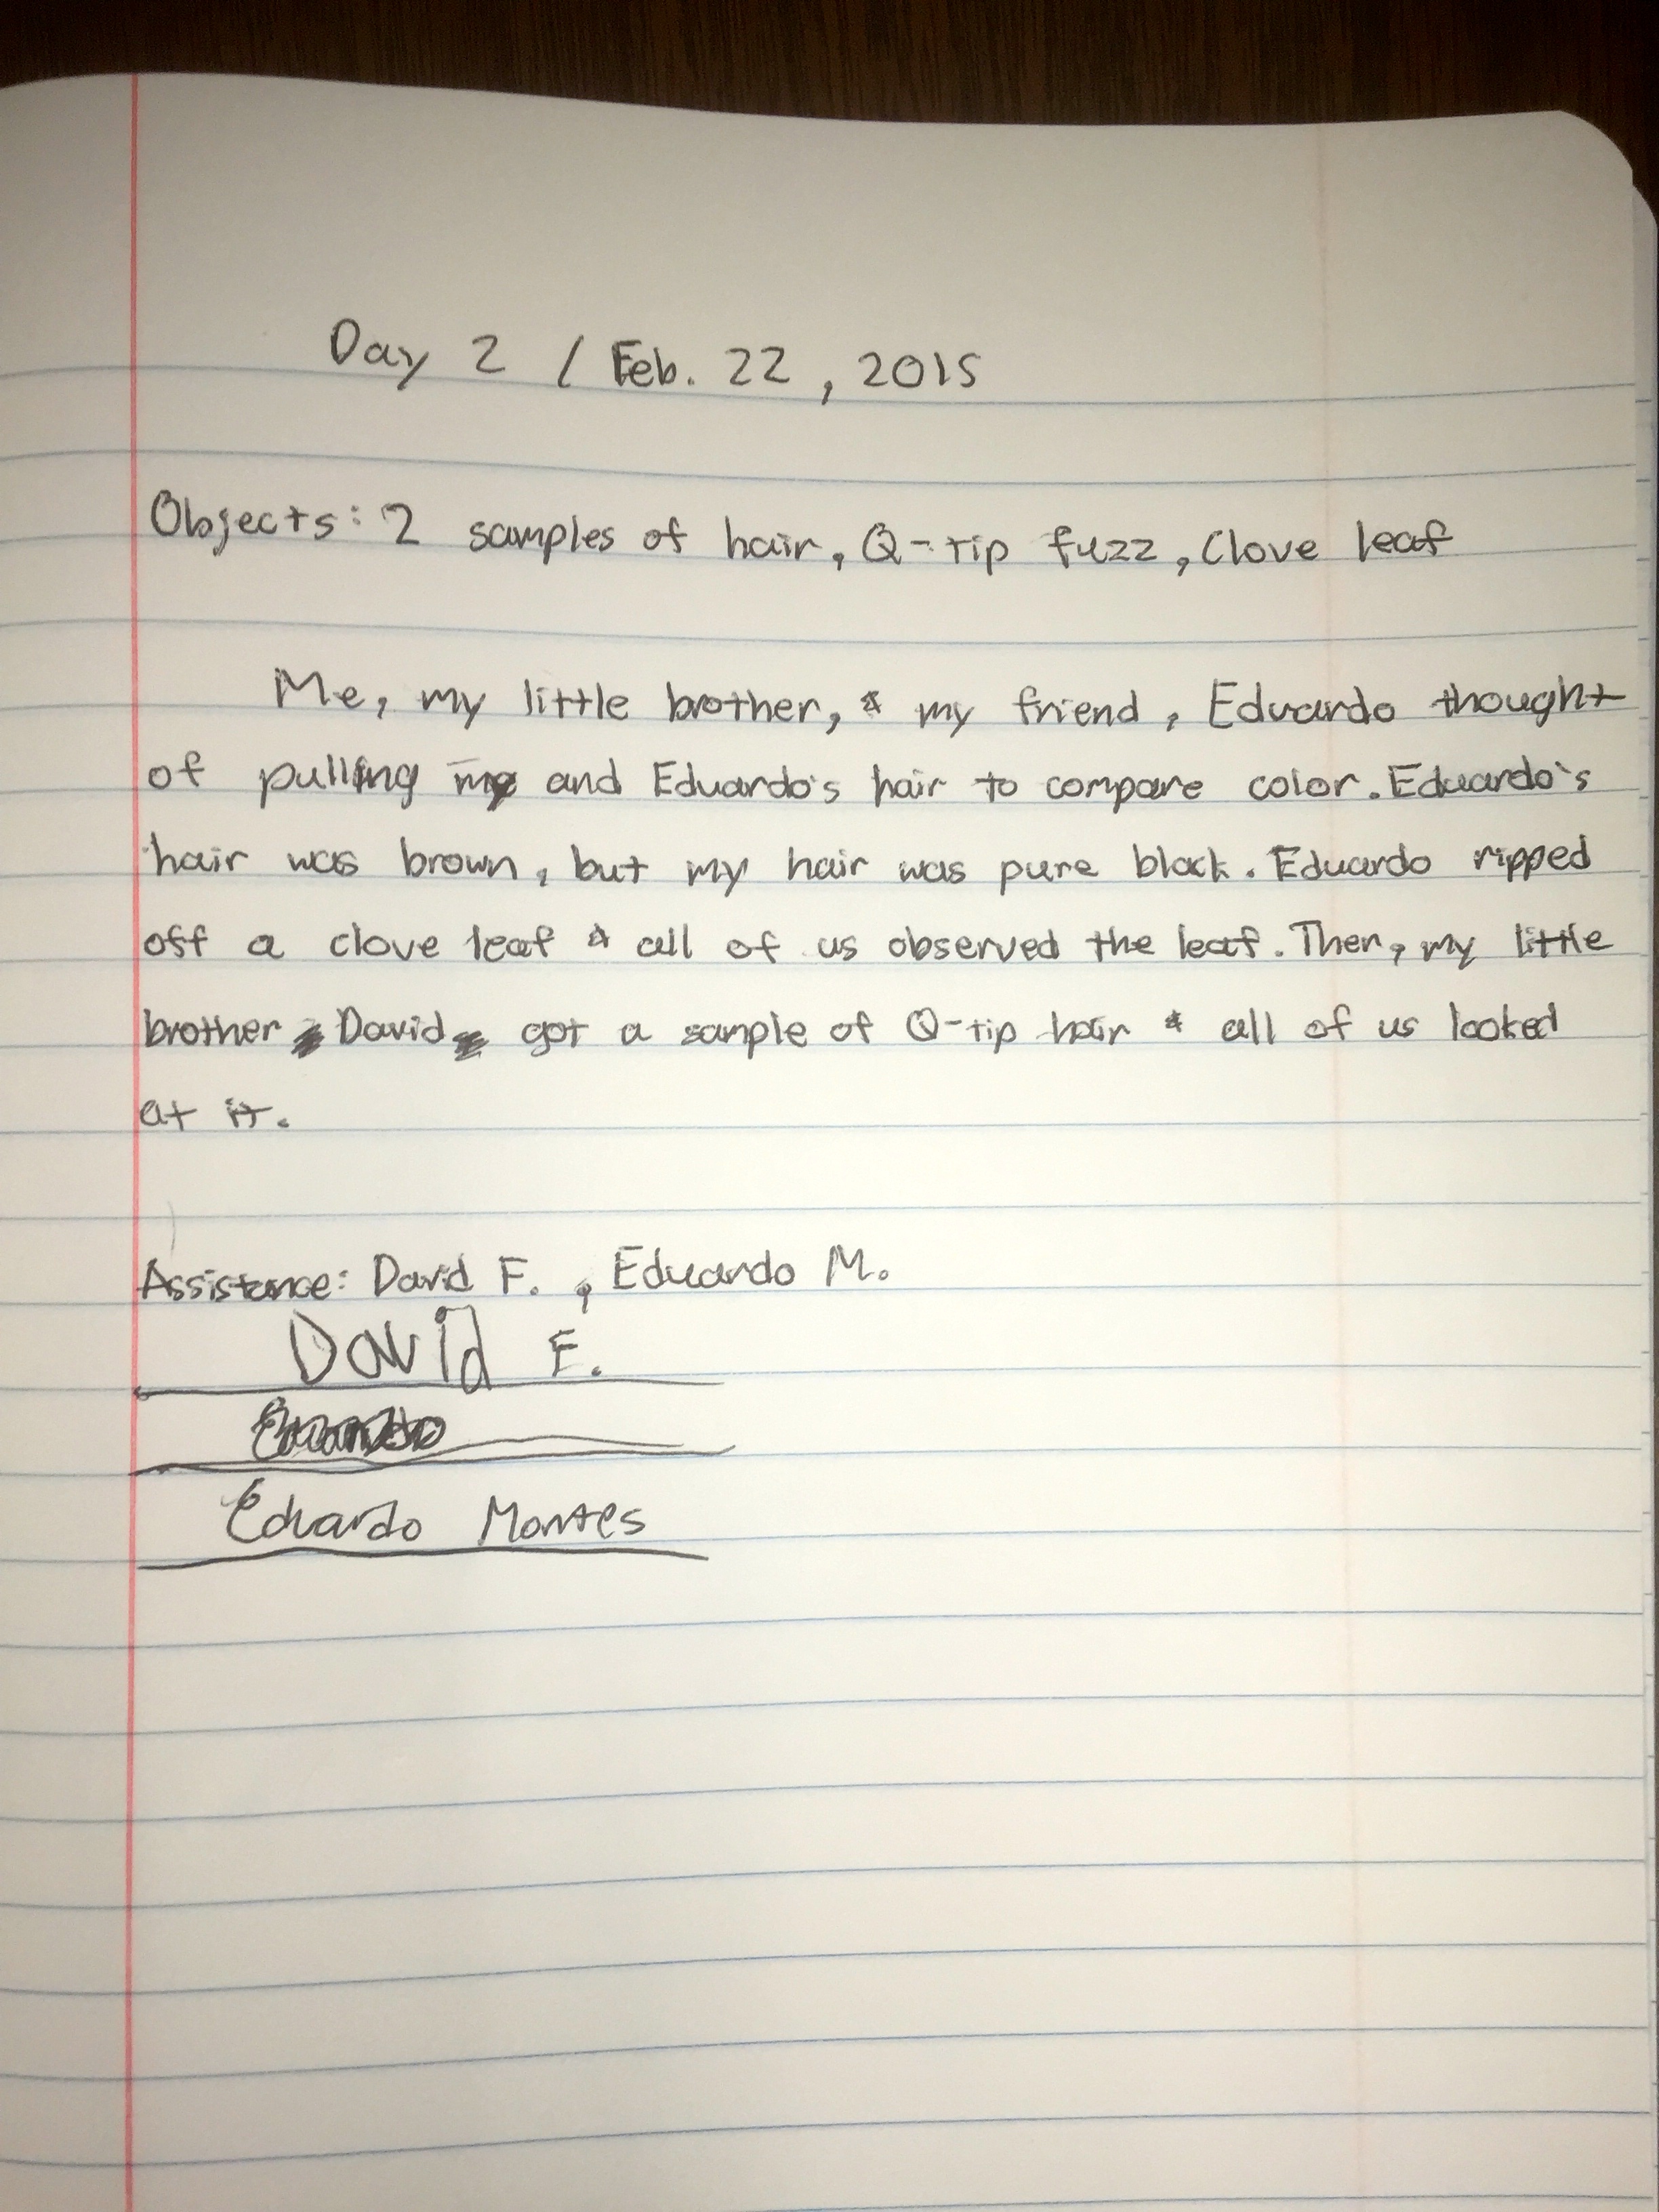 Day 2 / Feb. 22, 2015
Objects: 2 samples of hair, Q-tip fuzz, Clove leaf
Me, my little brother, & my friend, Eduardo thought
of pulling my and Eduardo's hair to compare color. Eduardo's
hair was brown, but my hair was pure black. Eduardo ripped
off a clove leaf & all of us observed the leaf. Then, my little
brother David got a sample of Q-tip hair & all of us looked
at it.
Assistance: David F. , Eduardo M.
David F.
Eduardo Montes